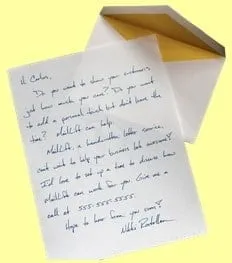 Hi Carlos,
Do you want to show your customers
just how much you care? Do you want
to add a personal touch but don't have the
time? MailLift can help.
MailLift, a handwritten letter service,
can't wait to help your business look awesome!
I'd love to set up a time to discuss how
MailLift can work for you. Give me a
call at 555-555-5555
Hope to hear from you soon!